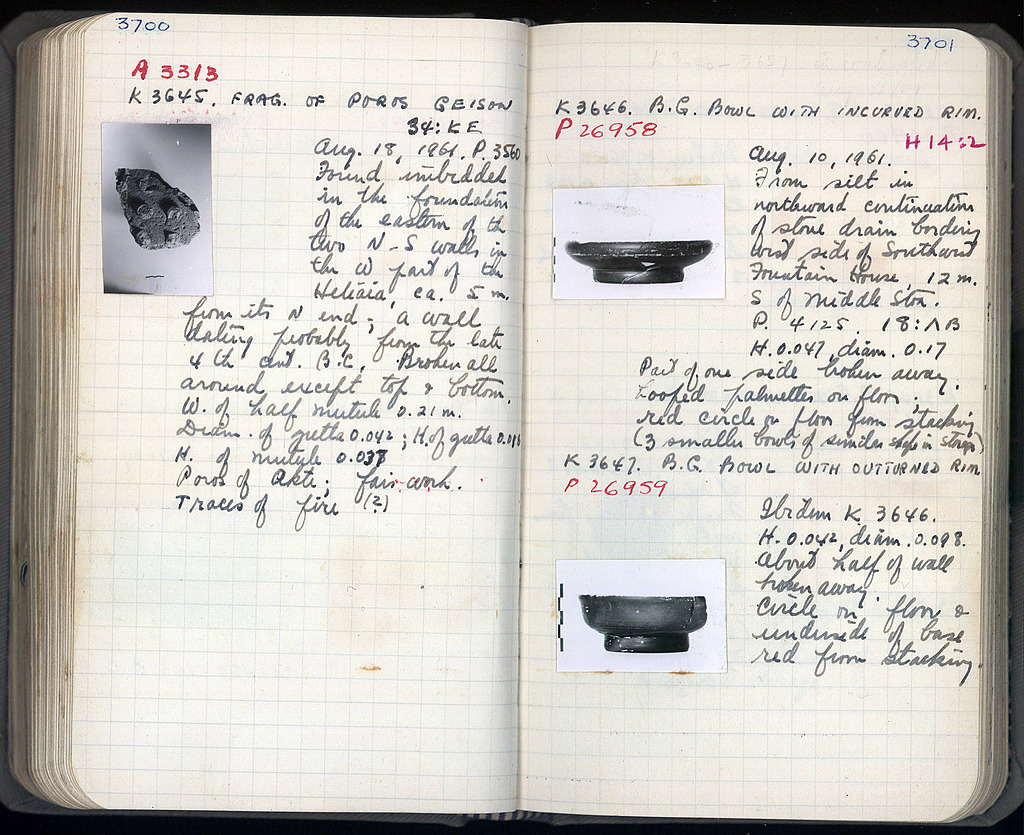 3700
A 3313
K 3645. FRAG. OF POROS GEISON
34:KE
Aug. 18, 1961. P. 3560
Found imbedded
in the foundation
of the eastern of the
two N-S walls in
the W part of the
Heliaia, ca. 5 m.
from its N end; a wall
dating probably from the late
4 th cent. B.C. Broken all
around except top & bottom.
W. of half mutule 0.21 m.
Diam. of gutta 0.042; H. of gutta 0.016
H. of mutule 0.037
Poros of Akte; fair work.
Traces of fire (?)
3701
K 3646. B.G. BOWL WITH INCURVED RIM.
P 26958
H 14:2
Aug. 10, 1961.
From silt in
northward continuation
of stone drain bordering
west side of Southwest
Fountain House, 12 m.
S of Middle Stoa.
P. 4125. 18:ΛB
H. 0.047, diam. 0.17
Part of one side broken away.
Looped palmettes on floor;
red circle on floor from stacking
(3 smaller bowls of similar shape in strips)
K 3647. B.G. BOWL WITH OUTTURNED RIM
P 26959
Ibidem K 3646.
H. 0.042, diam. 0.098.
About half of wall
broken away
Circle on floor &
underside of base
red from stacking.